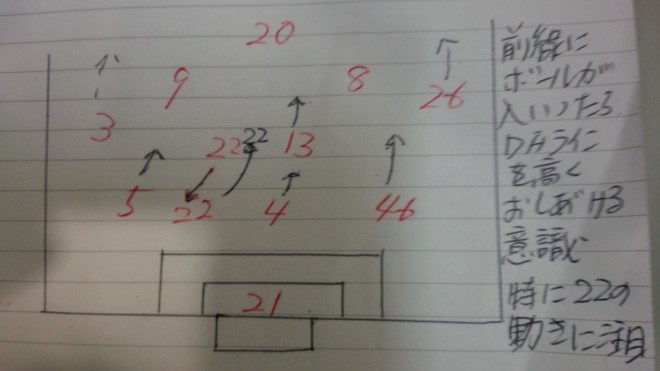 20
9 8
3 26
22 22 13
5 22 4 46
21
前線に
ボールが
入いったら
DFラインに
を高く
おしあげる
意識で
特に22の
動きに注目